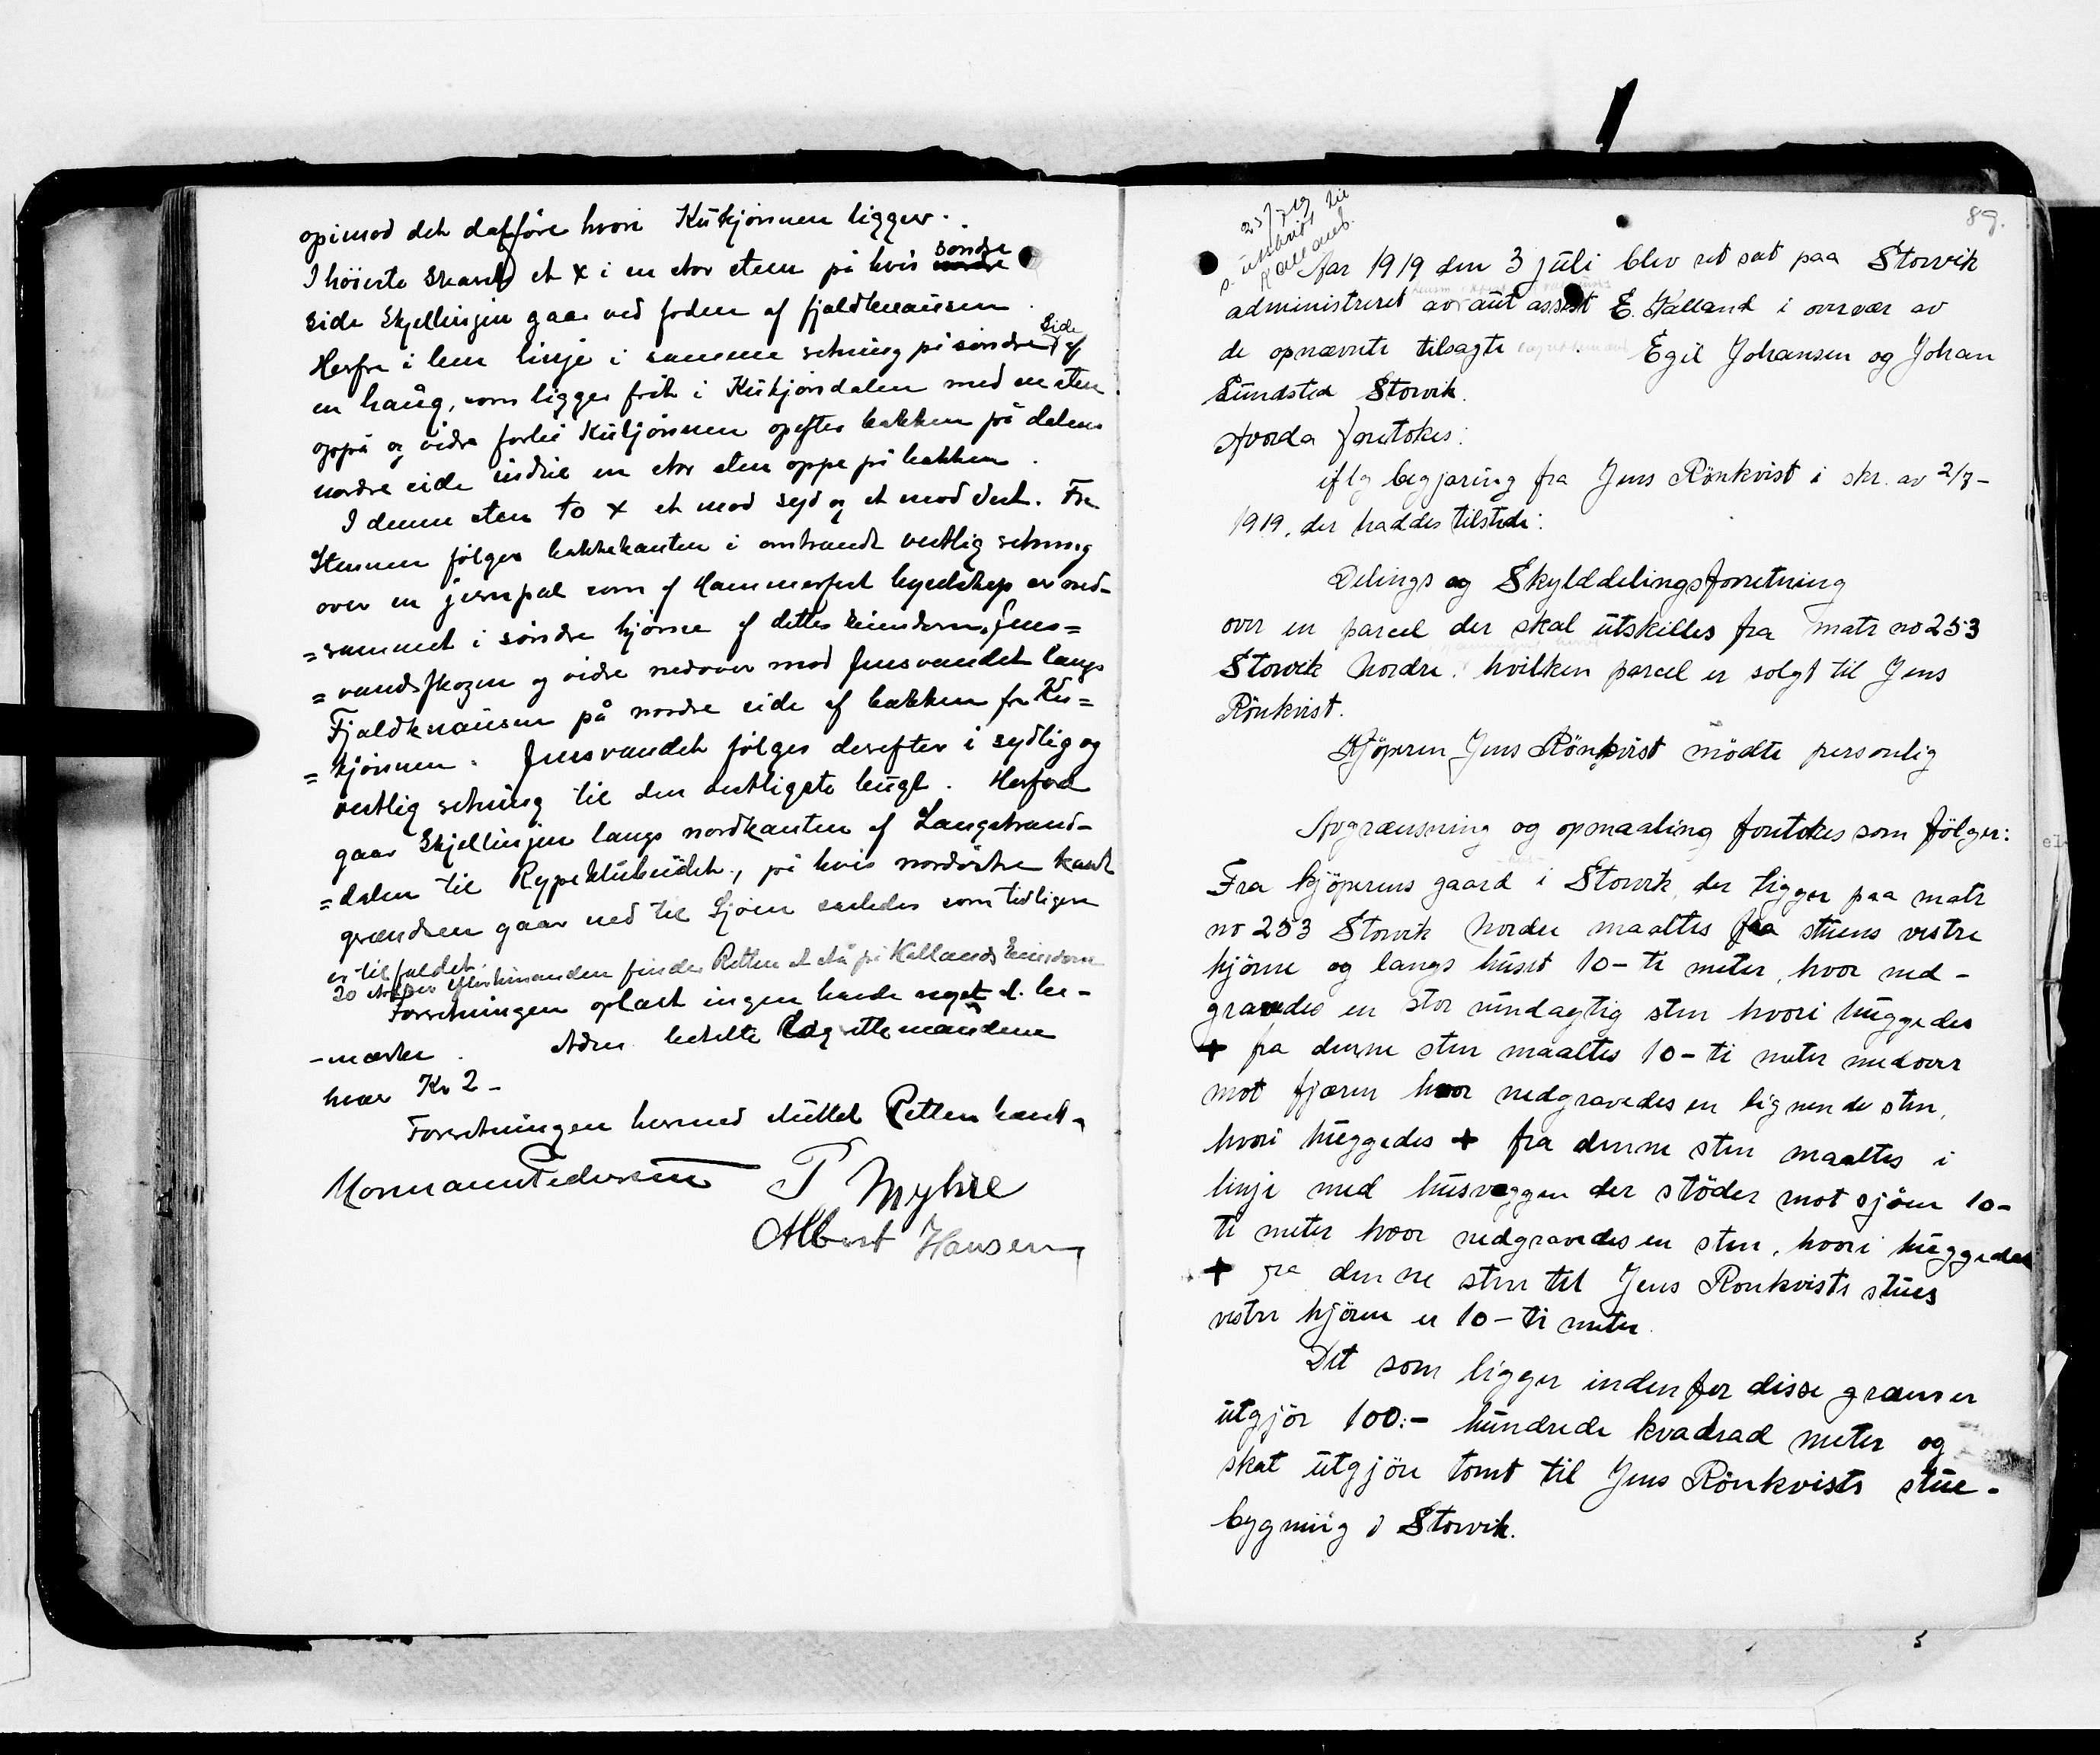 opimod det dalføre hvori Kutjønnen ligger.
I høieste Skard et x i en stor sten på hvis søndre
side Skjellinjen gaar ved foden af fjaldknausen
Herfra i lem linje i samme retning på søndre side af
en haug, som ligger frit i Kutjøndalen med en sten
oppå og vidre forbi Kutjønnen opefter bakken på dalens
nordre side indtil en stor sten oppe på bakken.
I denne sten to x et mod syd og et mod Vest. Fra
Stenen følges bakkekanten i omtrendt vestlig retning
over en jernpæl som af Hammerfest byselskap er ned-
=rammet i søndre hjørne af dettes Eiendom, Jens=
=vandsskogen og vidre nedover mod Jensvandet langs
Fjaldknausen på nordre side af bakken fra Ku=
=tjønnen. Jensvandet følges derefter i sydlig og
vestlig retning til den vestligste bugt. Herfra
gaar Skjellinjen langs nordkanten af Langstrand-
=dalen til Rypeklubskidet, på hvis nordøstre kant
grændsen gaar ned til Sjøen saaledes som tidligere
er tilfældet.
20 finder Retten at stå på Kellands Eiendom
Forretningen oplæst ingen havde noget at be-
-mærke. Adm. betalte Lagrettemændene
hver Kr 2-
Forretningen hermed sluttet Retten hævet.
Normann Pedersen P Myhre
Albert Hansen
89.
25/7 19
utskrift til
Kalland.
Aar 1919 den 3 juli blev ret sat paa Storvik
administreret av aut assist E. Kalland i overvær av
de opnævnte tilsagte Egil Johansen og Johan
Sundsted Storvik.
Hvorda foretokes:
iflg begjæring fra Jens Rönkvist i skr. av 2/7-
1919, der haddes tilstede:
Delings og Skylddelingsforretning
over en parcel der skal utskilles fra matr no 253
Storvik Nordre, hvilken parcel er solgt til Jens
Rönkvist.
Kjöperen Jens Rönkvist mödte personlig
Avgrænsning og opmaaling foretokes som fölger:
Fra kjöperens gaard i Storvik, der ligger paa matr
no 253 Storvik Nordre maaltes fra stuens vestre
hjörne og langs huset 10- ti meter, hvor ned-
gravedes en stor rundagtig sten hvori huggedes
+ fra denne sten maaltes 10- ti meter nedover
mot fjæren hvor nedgravedes en lignende sten,
hvori huggedes + fra denne sten maaltes i
linje med husveggen der stöder mot sjöen 10-
ti meter hvor nedgravedes en sten, hvori huggedes
+ fra denne sten til Jens Ronkvists stues
vestre hjörne er 10- ti meter.
Det som ligger indenfor disse grænser
utgjör 100:- hundrede kvadrad meter og
skal utgjöre tomt til Jens Rönkvists stue-
bygning i Storvik.